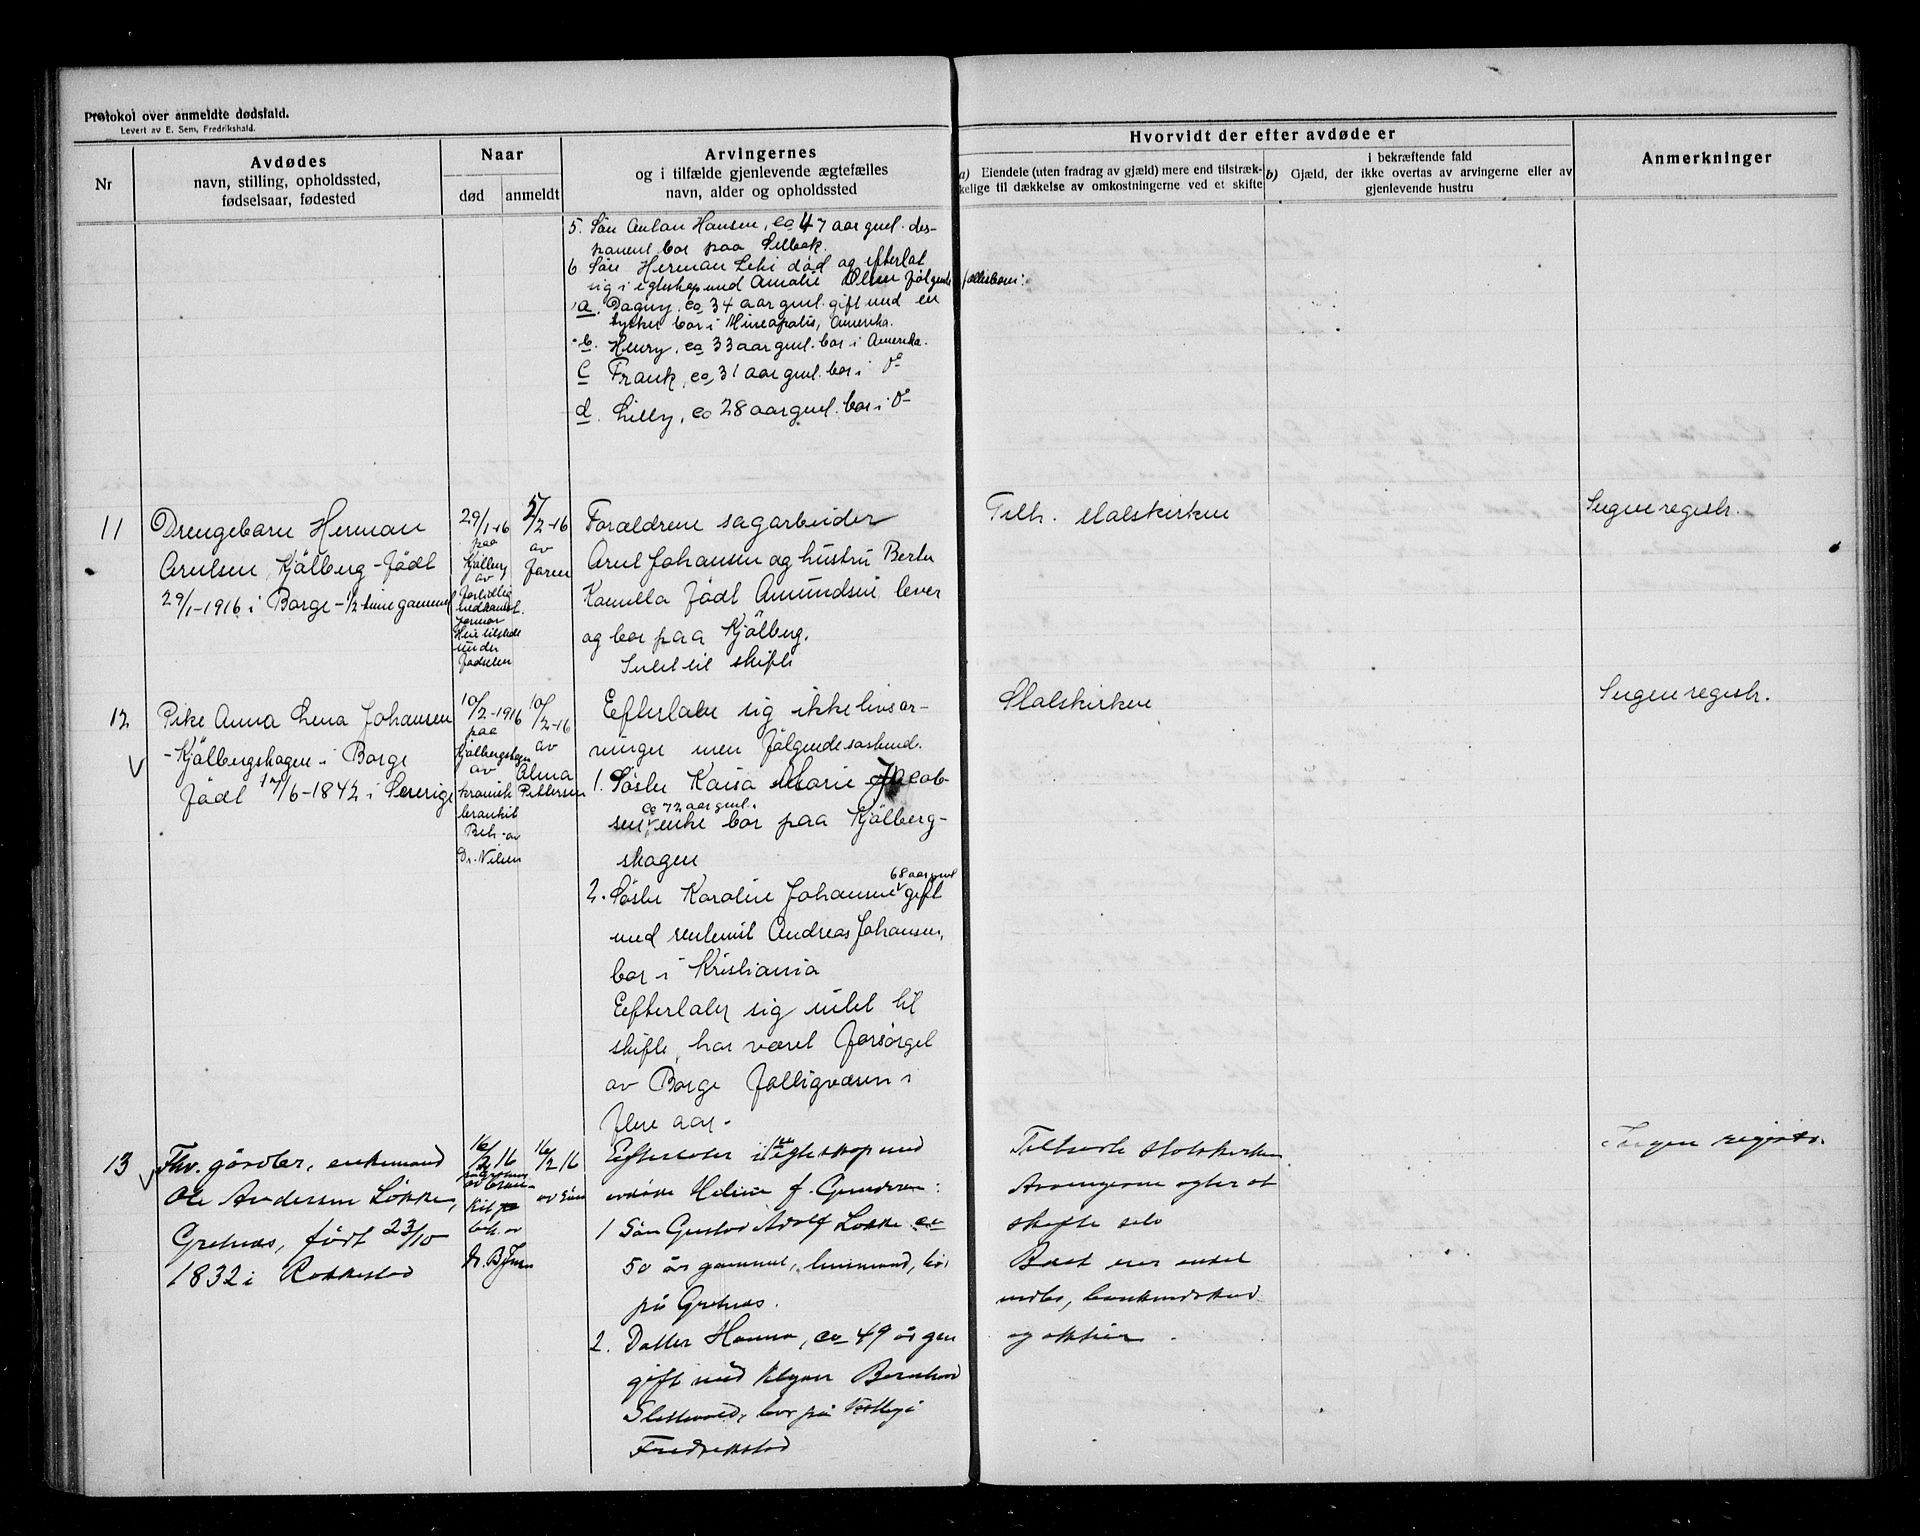 Protokol over anmeldte dødsfald.
Levert av E. Sem, Fredrikshald.
Nr
Avdødes
navn, stilling, opholdssted,
fødselsaar, fødested
Naar
død
anmeldt
Arvingernes
og i tilfælde gjenlevende ægtefælles
navn, alder og opholdssted
Hvorvidt der efter avdøde er
a) Eiendele (uten fradrag av gjæld) mere end tilstræk-
kelige til dækkelse av omkostningerne ved et skifte
i bekræftende fald
b) Gjæld, der ikke overtas av arvingerne eller av
gjenlevende hustru
Anmerkninger
5. Søn Anton Hansen, ca 47 aar gml. dis-
ponent bor paa Selbak.
6 Søn Herman død og efterlot
sig i egteskap med Amalie Olsen følgende fællesbarn:
a. Dagny, ca 34 aar gml. gift med en
tysker bor i Mineapolis, Amerika.
b. Henry, ca 33 aar gml. bor i Amerika.
c Frank, ca 31 aar gml. bor i do
d. Lilly, ca 28 aar gml. bor i do
11
Drengebarn Herman
Arntsen, Kjølberg - født
29/1-1916 i Borge - 1/2 time gammel
29/1-16
paa
Kjølberg
av
fortidlig
nedkomst.
Jormor
var tilstede
under
fødselen
5/2-16
av
faren
Forældrene sagarbeider
Arnt Johansen og hustru Berta
Kamilla født Amundsen, lever
og bor paa Kjølberg.
Intet til skifte
Tilh. statskirken
Ingen registr.
12
Pike Anna Lena Johansen
- Kjølbergskogen i Borge
født 17/6-1842 i Sverige
10/2-1916
paa
Kjølbergskogen
av
kronisk
bronkit
Beh. av
Dr. Nilsen
10/2-16
av
Alma
Pettersen
Efterlater sig ikke livsar-
vinger men følgende søskend.
1. Søster Kaisa Marie Jacob-
sen, enke bor paa Kjølberg-
ca 72 aar gml.
skogen
2. Søster Karoline Johansen gift
68 aar gml
med rentenist Andreas Johansen,
bor i Kristiania
Efterlater sig intet til
skifte, har været forsørget
av Borge fattigvæsen i
flere aar -
Statskirken
Ingen registr.
13
Fhv. gårdbr, enkemand
Ole Andersen Løkke,
Gretnes, født 23/10
1832 i Rakkestad
16/2 16
av bron-
kit
beh. av
16/2 16
av Søn
Efterlater i 1ste egteskap med
avdøde Heline f. Gundersen:
1 Søn Gustav Adolf Løkke ca
50 år gammel, bor
på Gretnes.
2. Datter Hanna, ca 49 år gml
gift med Bernhard
bor på
Fredrikstad
Tilhørte statskirken
Arvingerne agter at
skifte selv
Boet eier endel
møbler, bankindskud
og aktier.
Ingen registr.